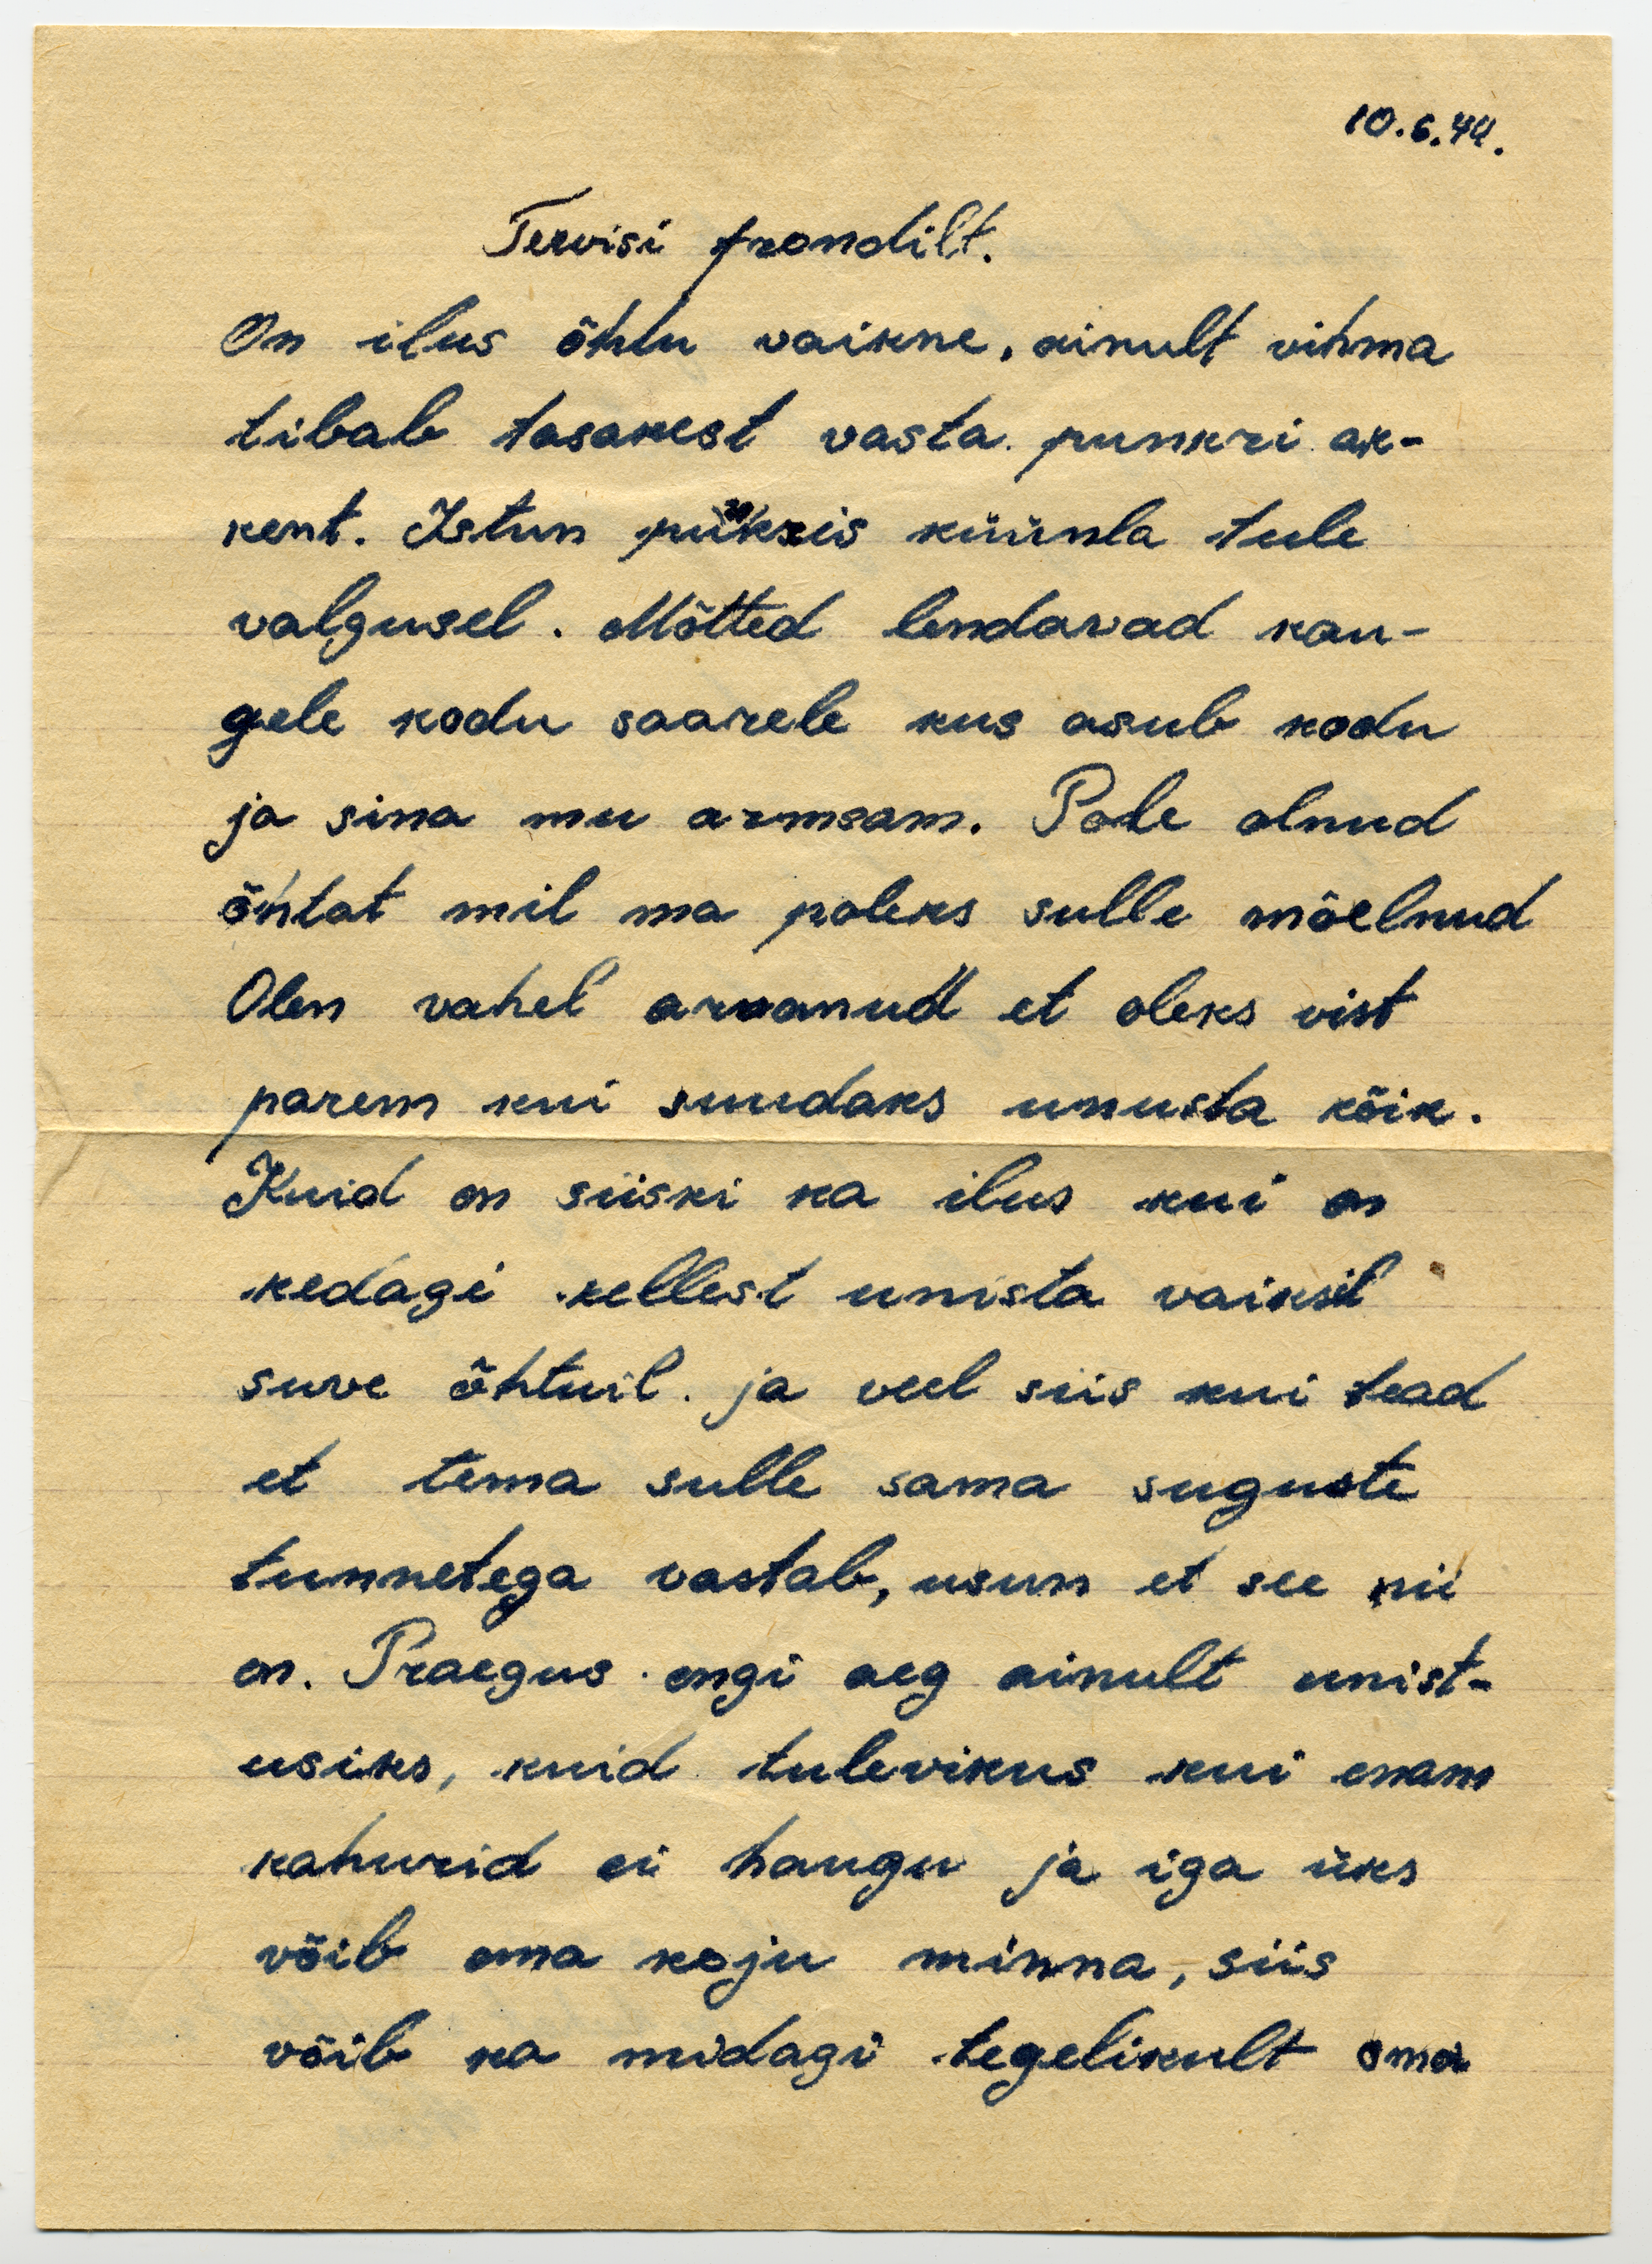 10.6.44.
Tervisi frondilt.
On ilus õhtu vaikne, ainult vihma
tibab tasakest vasta punkri ak-
kent. Istun punkris küünla tule
valgusel. Mõtted lendavad kau-
gele kodu saarele kus asub kodu
ja sina mu armsam. Pole olnud
õhtat mil ma poleks sulle mõelnud
Olen vahel arvanud et oleks vist
parem kui suudaks unusta kõik.
Kuid on siiski ka ilus kui on
kedagi kellest unista vaiksil
suve õhtuil. ja veel siis kui tead
et tema sulle sama suguste
tunnetega vastab, usun et see nii
on. Praegus ongi aeg ainult unist-
usiks, kuid tulevikus kui enam
kahurid ei haugu ja iga üks
võib oma koju minna, siis
võib ka midagi tegelikult oma